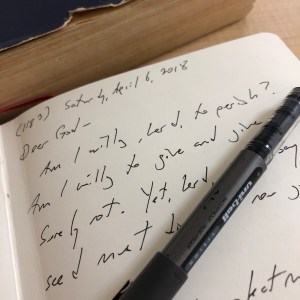 (1183) Saturday, April 6, 2018
Dear God-
Am I willing, Lord, to perish?
Am I willing to give and give
Surely not. Yet, Lord, say
seed must now
uni-ball